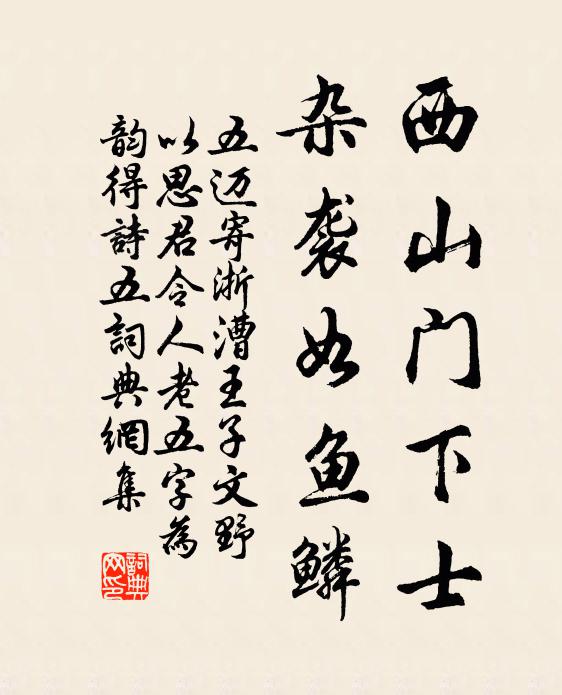 西山门下士
杂袭如鱼鳞
五迈寄浙漕王子文野
以思君令人老五字为
韵得詩五詞典網集
詞典网印